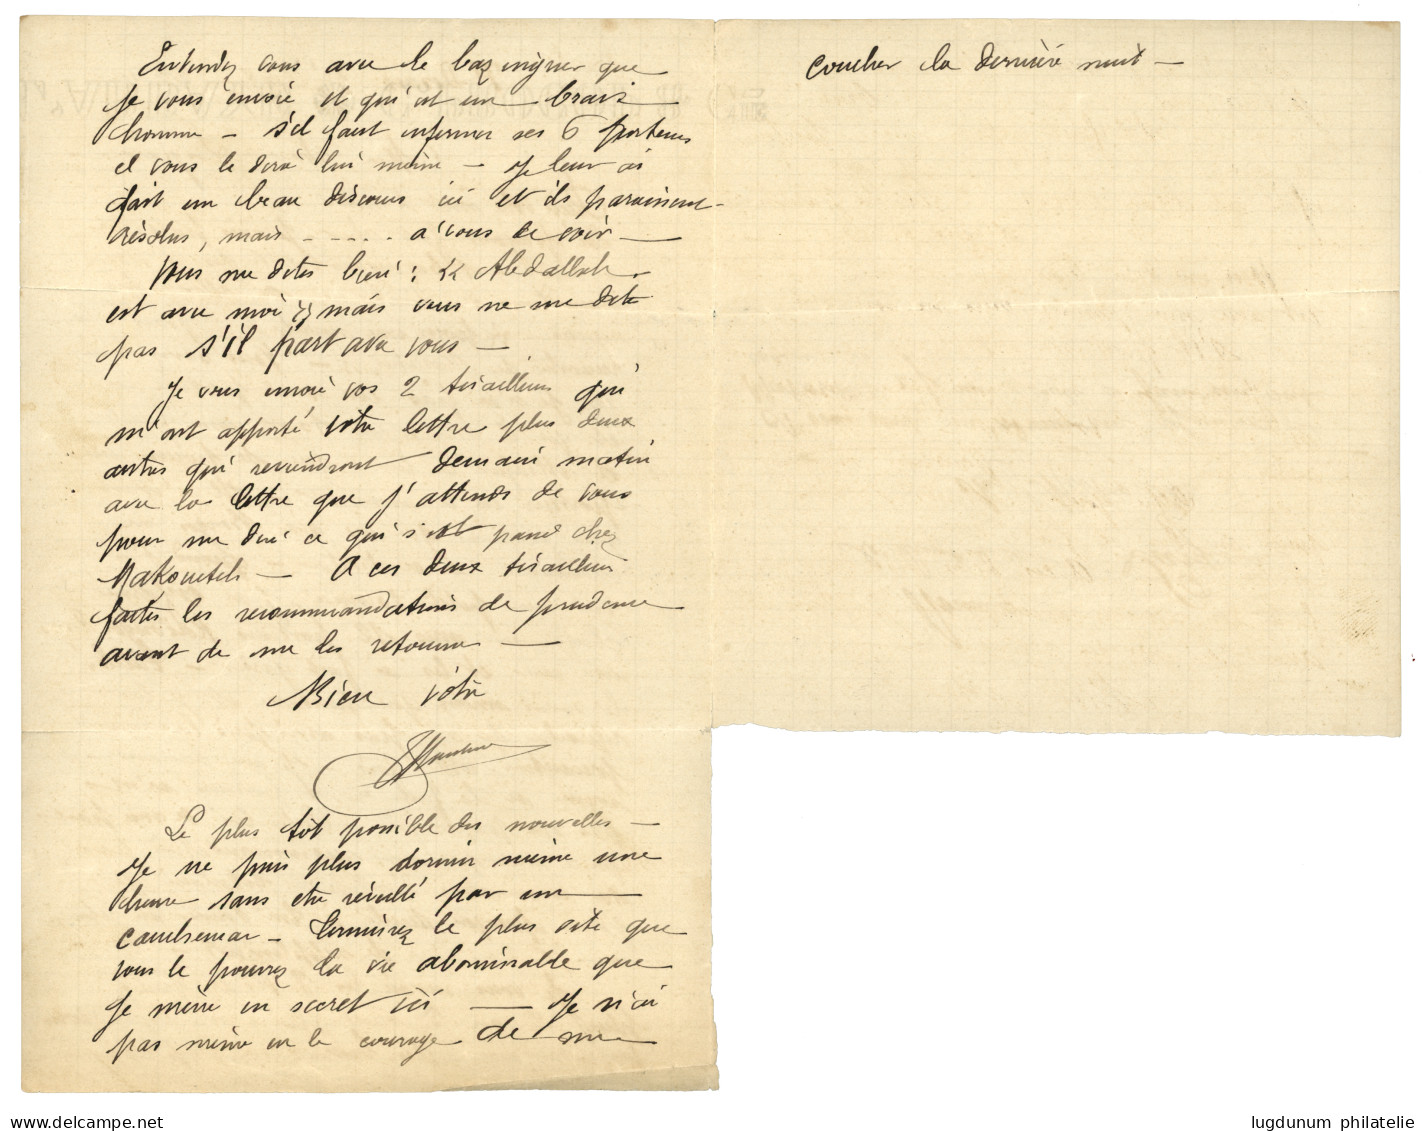 Entendez vous avec le baz migner que
je vous envoie et qui est un brave
homme – s'il faut enfermer ses 6 porteurs
il vous le dira lui même – Je leur ai
fait un beau discours ici et ils paraissent
résolus, mais - - - . . à vous de voir –
Vous me dites bien : « Abdallah
est avec moi » mais vous ne me dites
pas s'il part avec vous –
Je vous envoie vos 2 tirailleurs qui
m'ont apporté votre lettre plus deux
autres qui reviendront demain matin
avec la lettre que j'attends de vous
pour me dire ce qui s'est passé chez
Makouetch – A ces deux tirailleurs
faites les recommandations de prudence
avant de me les retourner –
Bien votre
Le plus tôt possible des nouvelles –
Je ne puis plus dormir même une
heure sans être réveillé par un
cauchemar – Terminez le plus vite que
vous le pouvez la vie abominable que
je mène en secret ici – Je n'ai
pas même eu le courage de me
coucher la dernière nuit –
delcampe.net
lugdunum philatelie